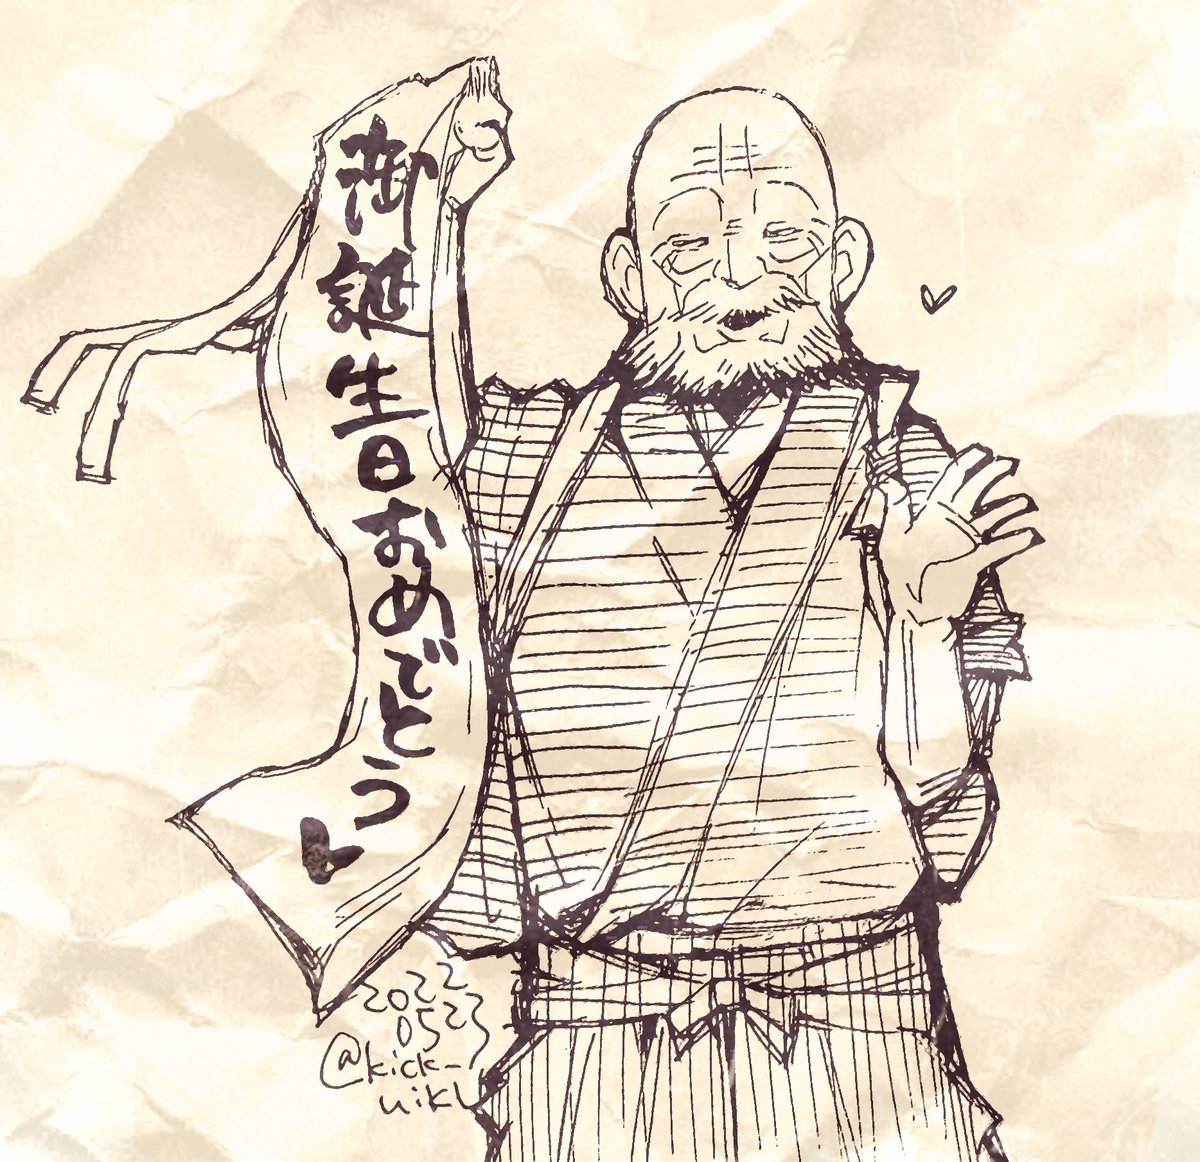 御誕生日おめでとう
2022
0523
@kick_